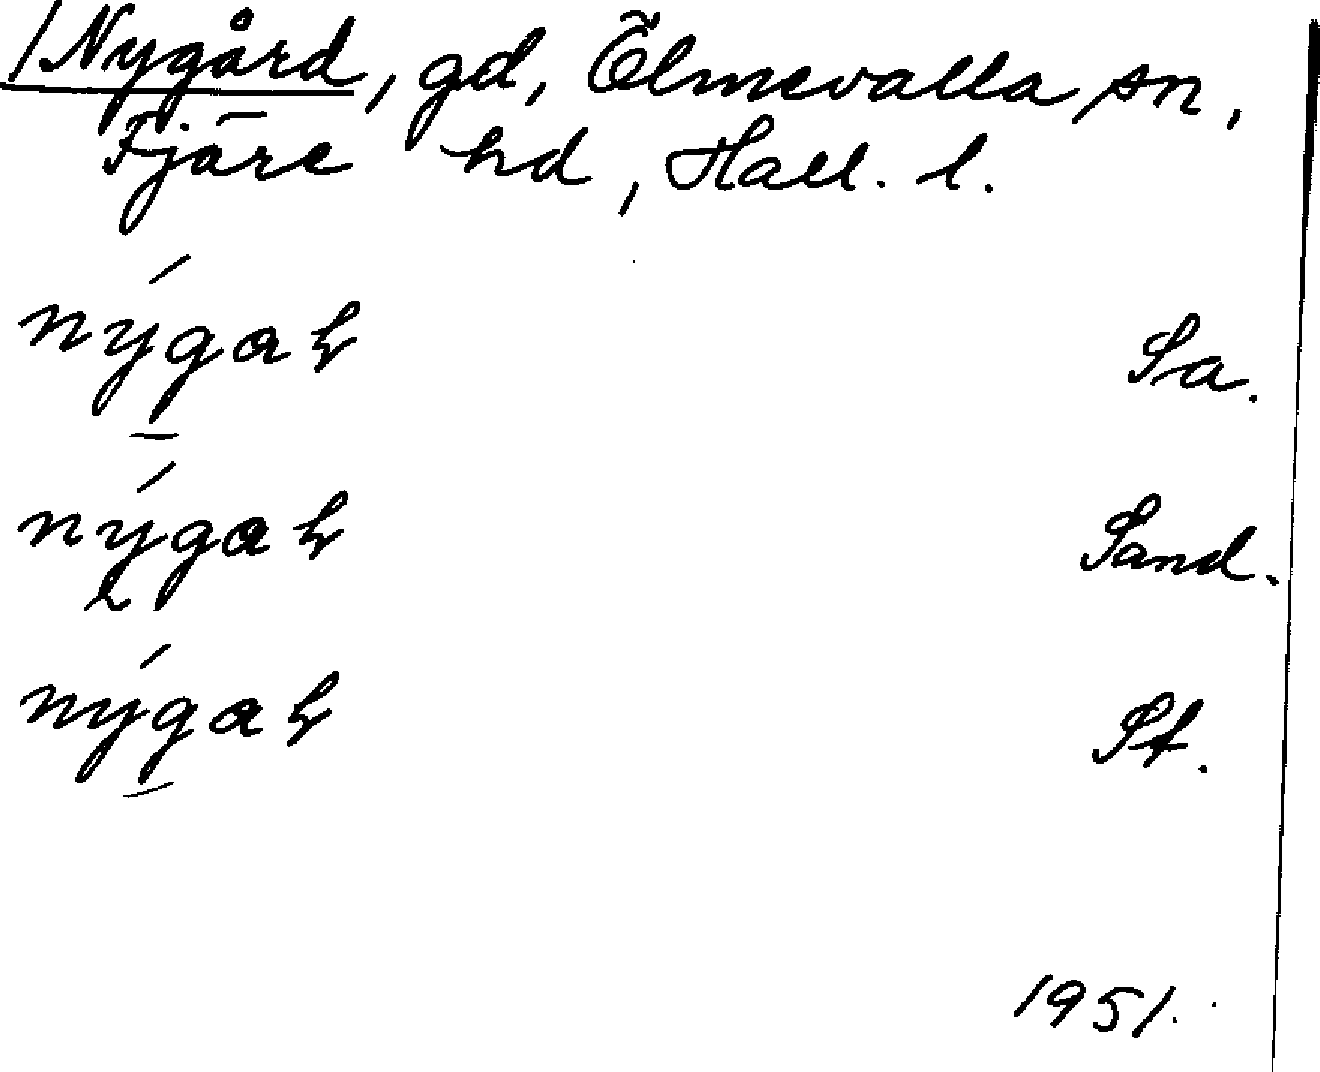 /Nygård, gd, Ölmevalla sn,
Fjäre hd, Hall. l.
nýgaɽ Sa.
nýgaɽ Sand.
nýgaɽ St.
1951.